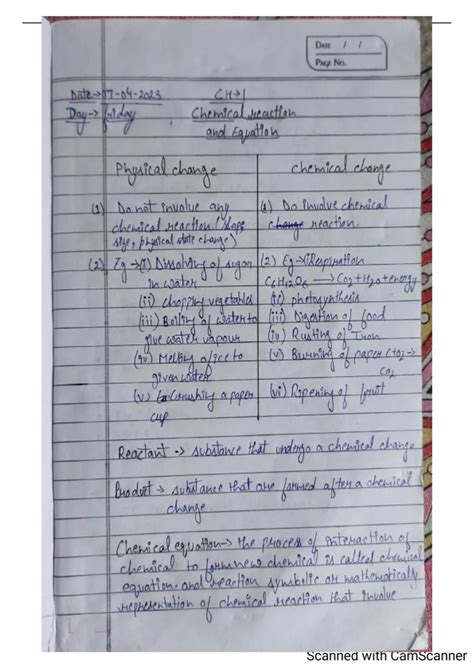 Date / /
Page No.
Date→07-04-2023
CH→1
Day→ friday
Chemical reaction
and Equation
Physical change
chemical change
(1) Do not involve any
chemical reaction (shape
size, physical state change)
(1) Do involve chemical
change reaction.
(2) Eg→(i) Dissolving of sugar
in water
(ii) chopping vegetables
(iii) Boiling of water to
give water vapour
(iv) Melting of ice to
given water
(v) crushing a paper
cup
(2) Eg→(i) Respiration
C6H12O6 → CO2+H2O+energy
(ii) photosynthesis
(iii) Digestion of food
(iv) Rusting of Iron
(v) Burning of paper C+O2→
CO2
(vi) Ripening of fruit
Reactant → substance that undergo a chemical change
Product → substance that are formed after a chemical
change.
Chemical equation→ the process of interaction of
chemical to form new chemical is called chemical
equation. and reaction symbolic or mathematically
representation of chemical reaction that involve
Scanned with CamScanner